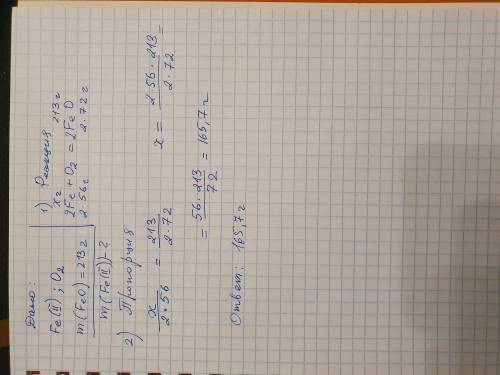 Дано:
Fe(II) ; O2
m(FeO) = 213 г
m(Fe(II)) - ?
1) Реакция
x г 213 г
2Fe + O2 = 2FeO
2·56 г 2·72 г
2) Пропорция
x / 2·56 = 213 / 2·72 x = 2·56·213 / 2·72 =
= 56·213 / 72 = 165,7 г
Ответ: 165,7 г